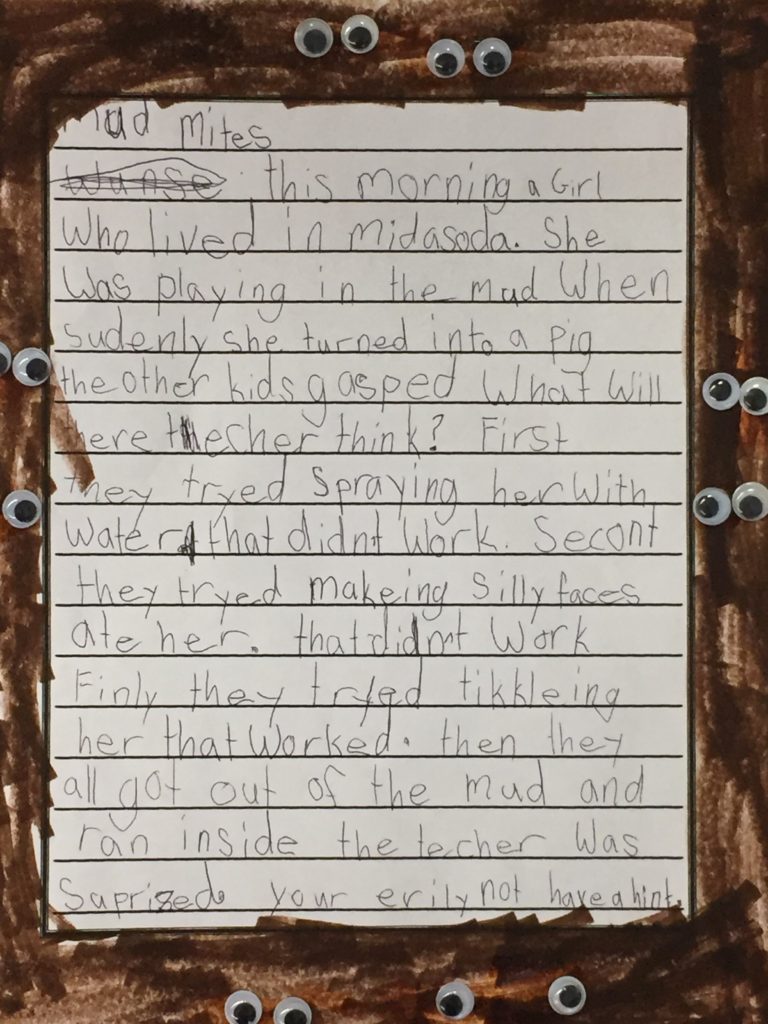 Mud Mites
Wunse this morning a Girl
Who lived in Midasoda. She
Was playing in the mud When
sudenly she turned into a pig
the other kids gasped What Will
here techer think? First
they tryed Spraying her With
Water that didnt Work. Secont
they tryed makeing Silly faces
ate her. that didnt Work
Finly they tryed tikkleing
her that Worked. then they
all got out of the mud and
ran inside the techer Was
Saprized. your erily not have a hint.